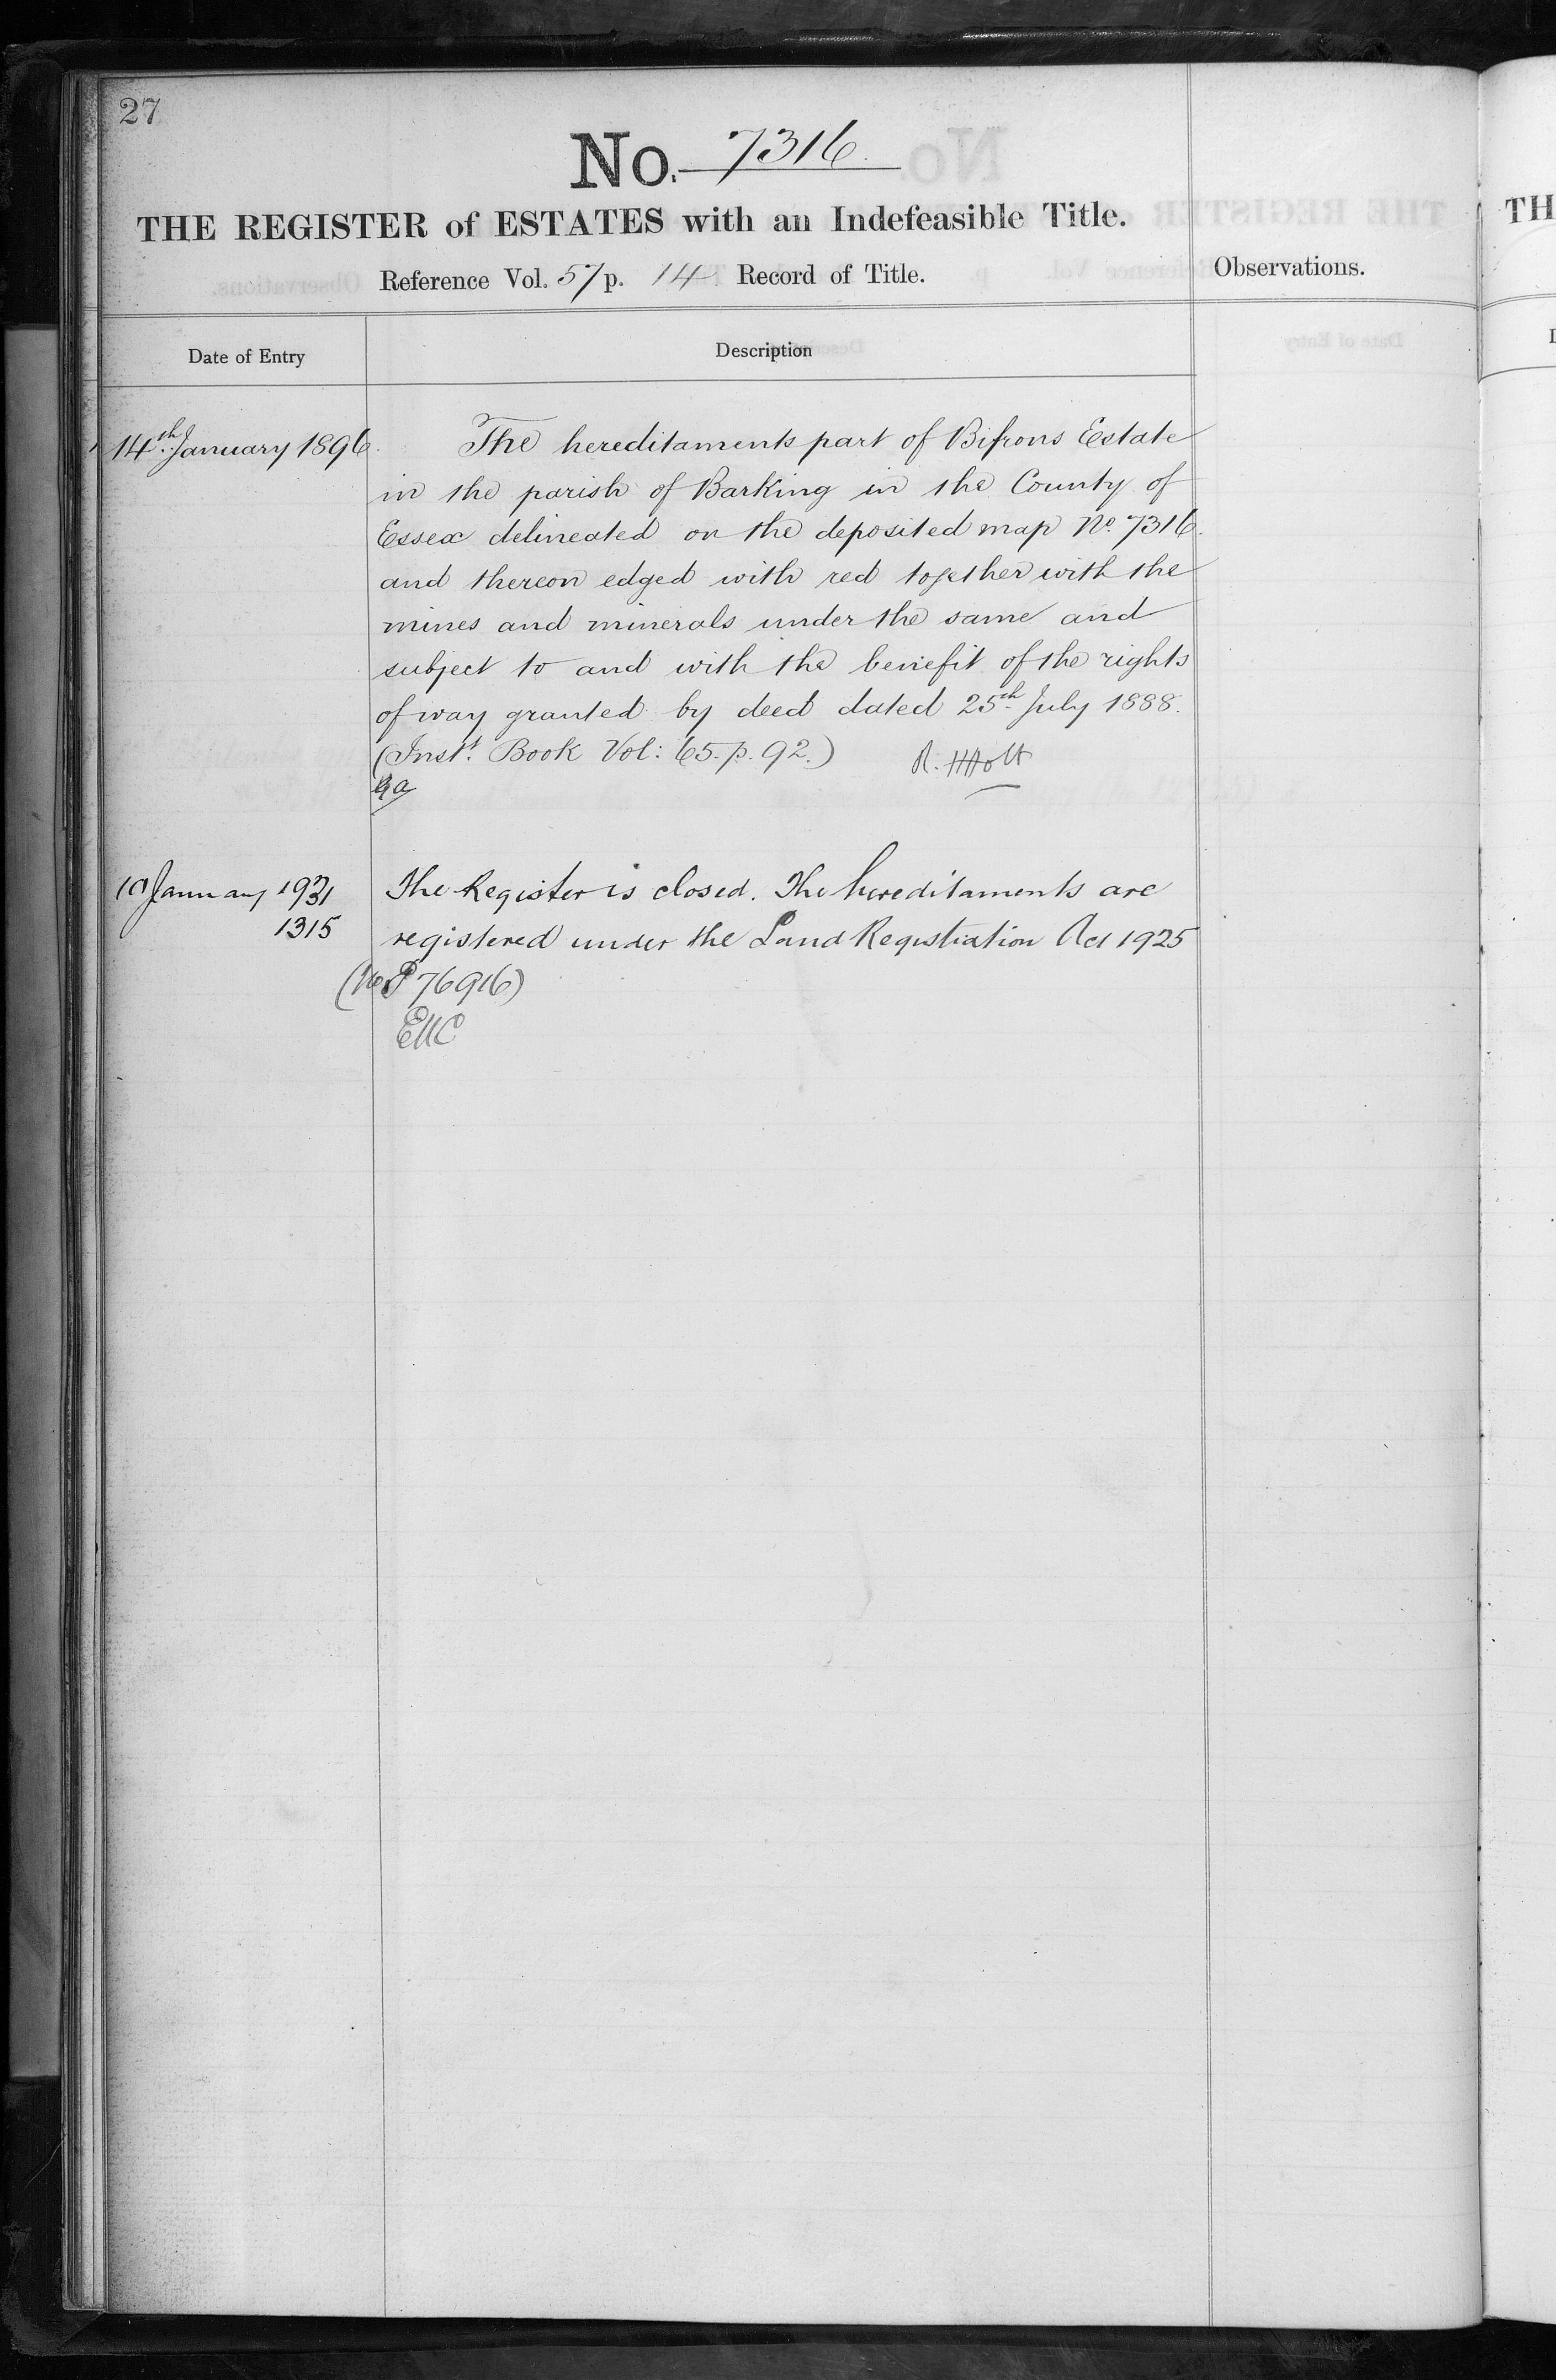 27
No. 7316.
THE REGISTER of ESTATES with an Indefeasible Title.
Reference Vol. 57 p. 14 Record of Title.
Observations.
Date of Entry
Description
14th January 1896.
The hereditaments part of Bifrons Estate
in the parish of Barking in the County of
Essex delineated on the deposited map No. 7316.
and thereon edged with red together with the
mines and minerals under the same and
subject to and with the benefit of the rights
of way granted by deed dated 25th July 1888.
(Inst. Book Vol: 65. p. 92.) R. H Holt
January 1931 The Register is closed. The hereditaments are
1315 registered under the Land Registration Act 1925
(No P 76916)
TH